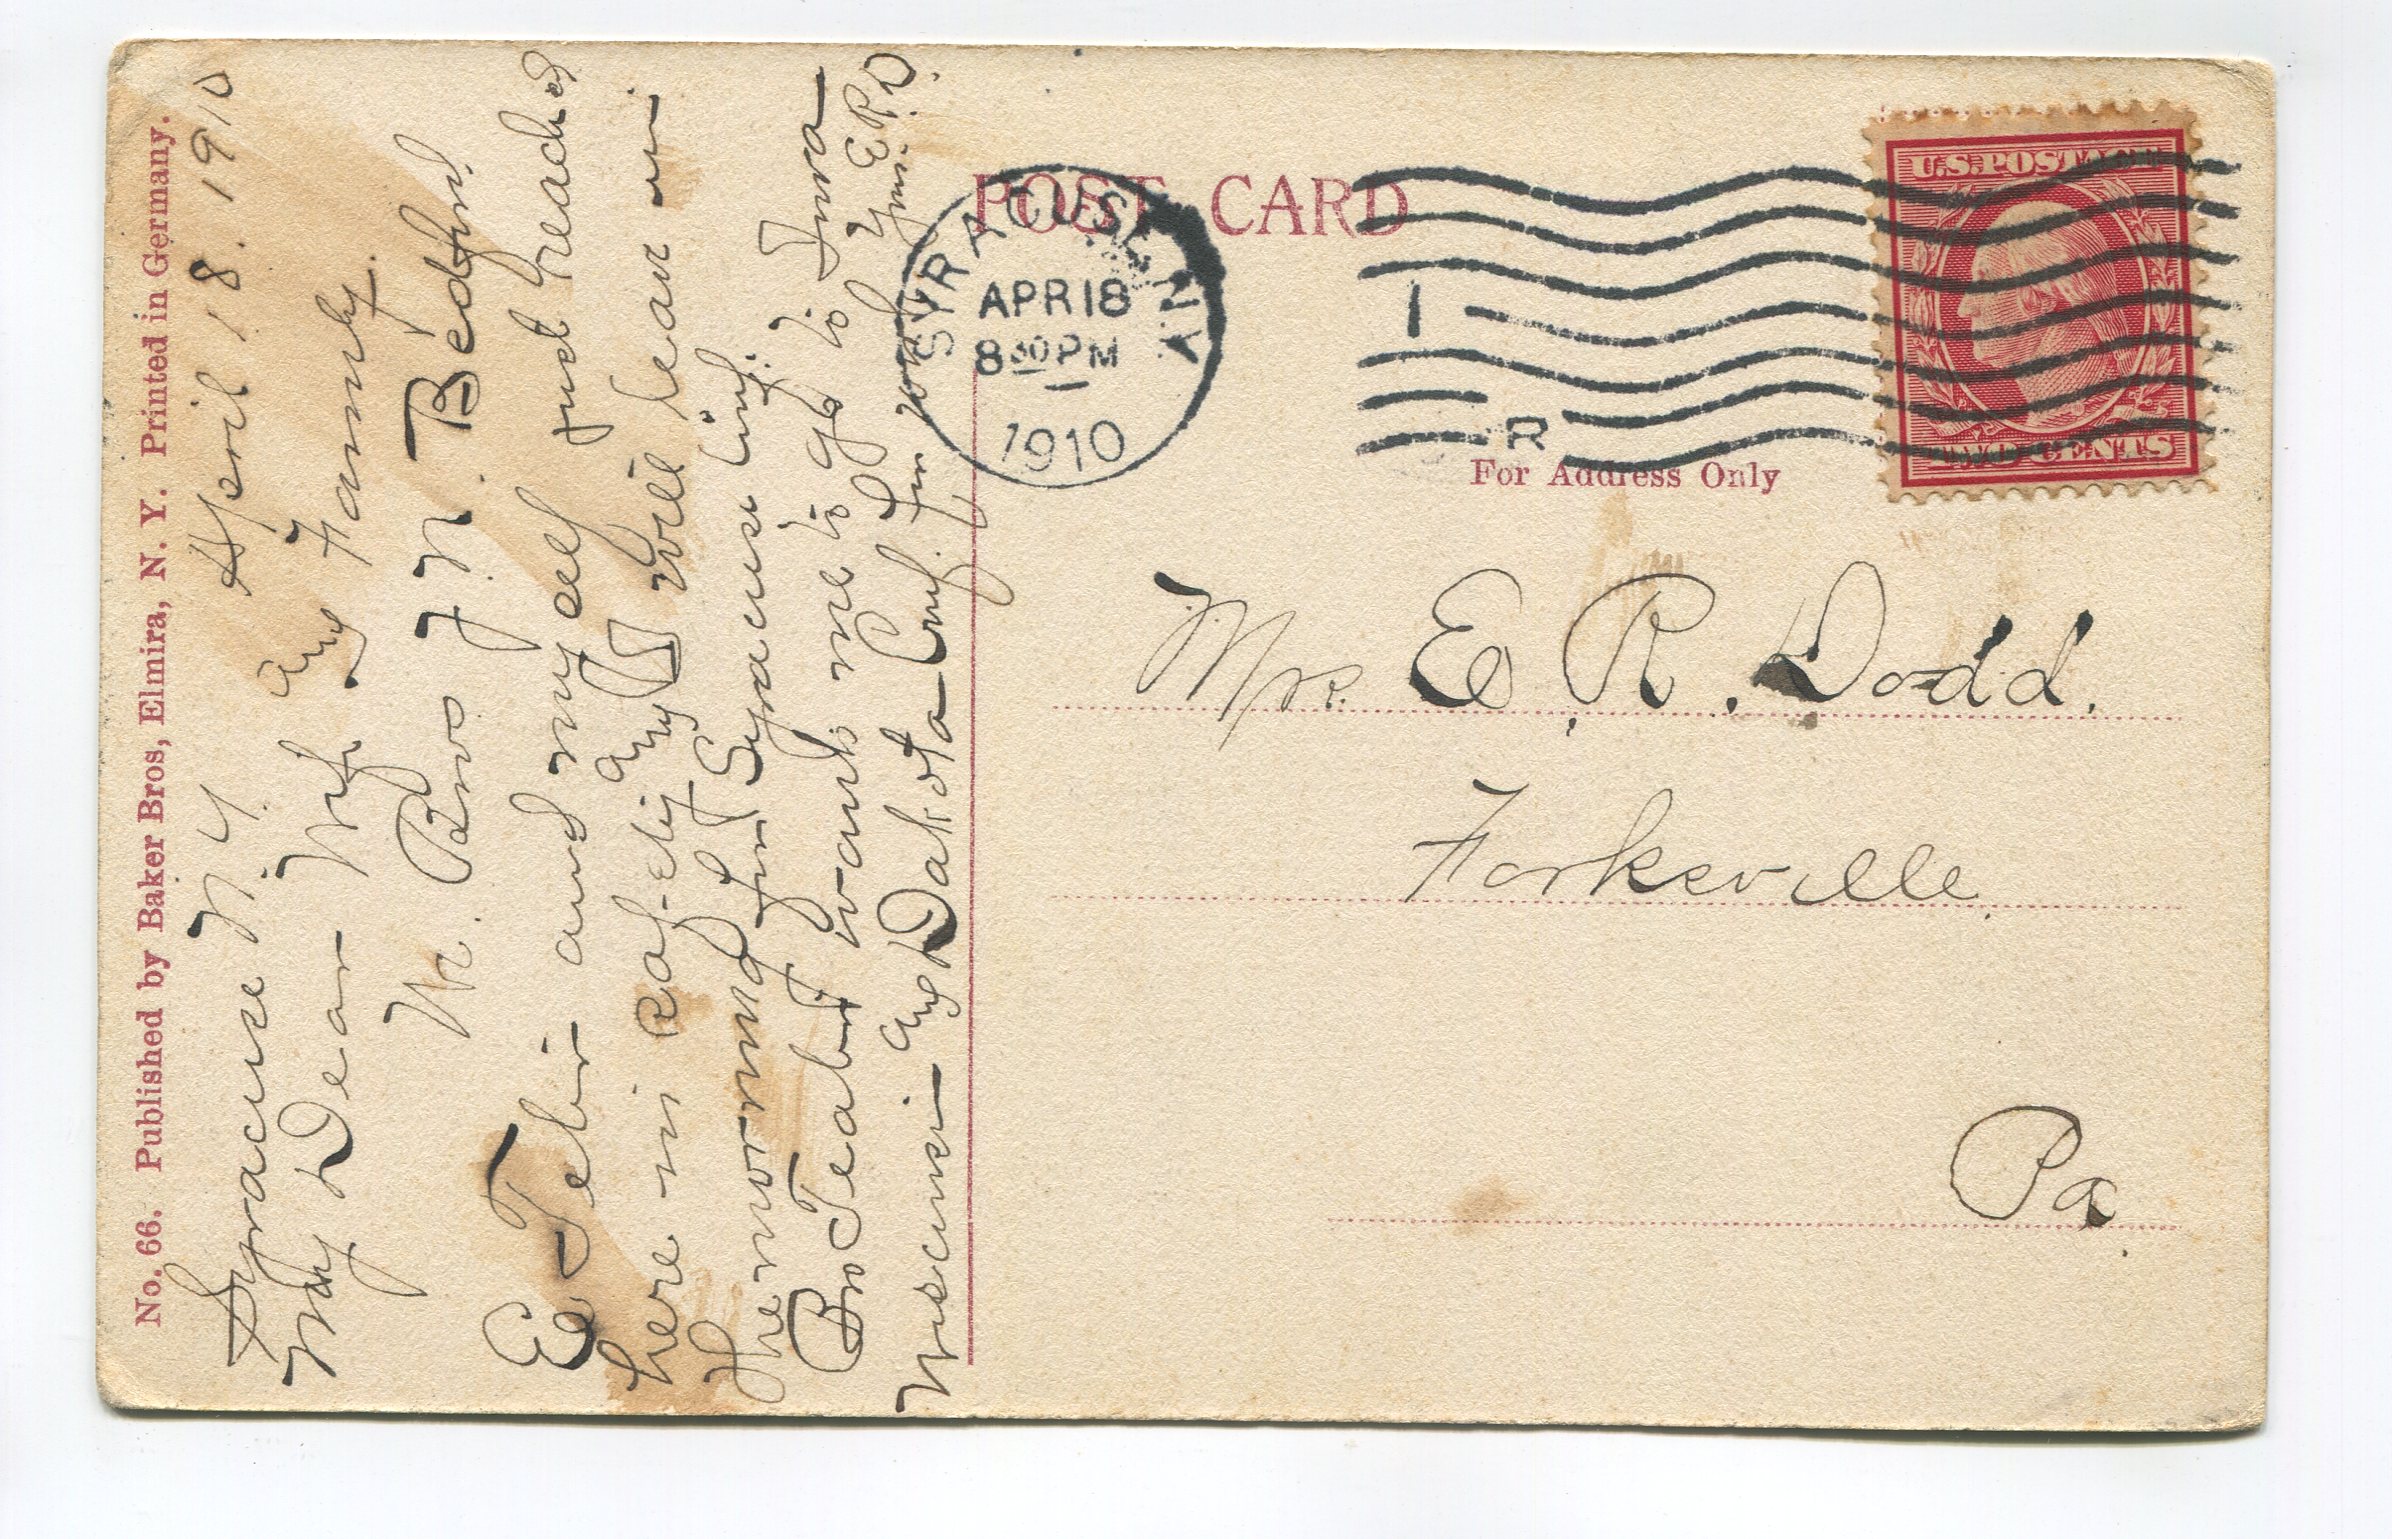 No. 66. Published by Baker Bros, Elmira, N. Y. Printed in Germany.
Syracuse N. Y. April 18. 1910
My Dear Wife and Family.
W. Bros J. N. Bedford
E Tebir and myself just reached
here in safety and will leave in
the morning for Syracuse Conf.
Bro Teabir wants me to go to Iowa
Wisconsin and Dakota Conf. for work
Yours E. R. D.
POST CARD
SYRACUSE N.Y.
APR 18
8 30 PM
1910
1
R
U.S. POSTAGE
TWO CENTS
For Address Only
Mrs. E. R. Dodd.
Forksville.
Pa.